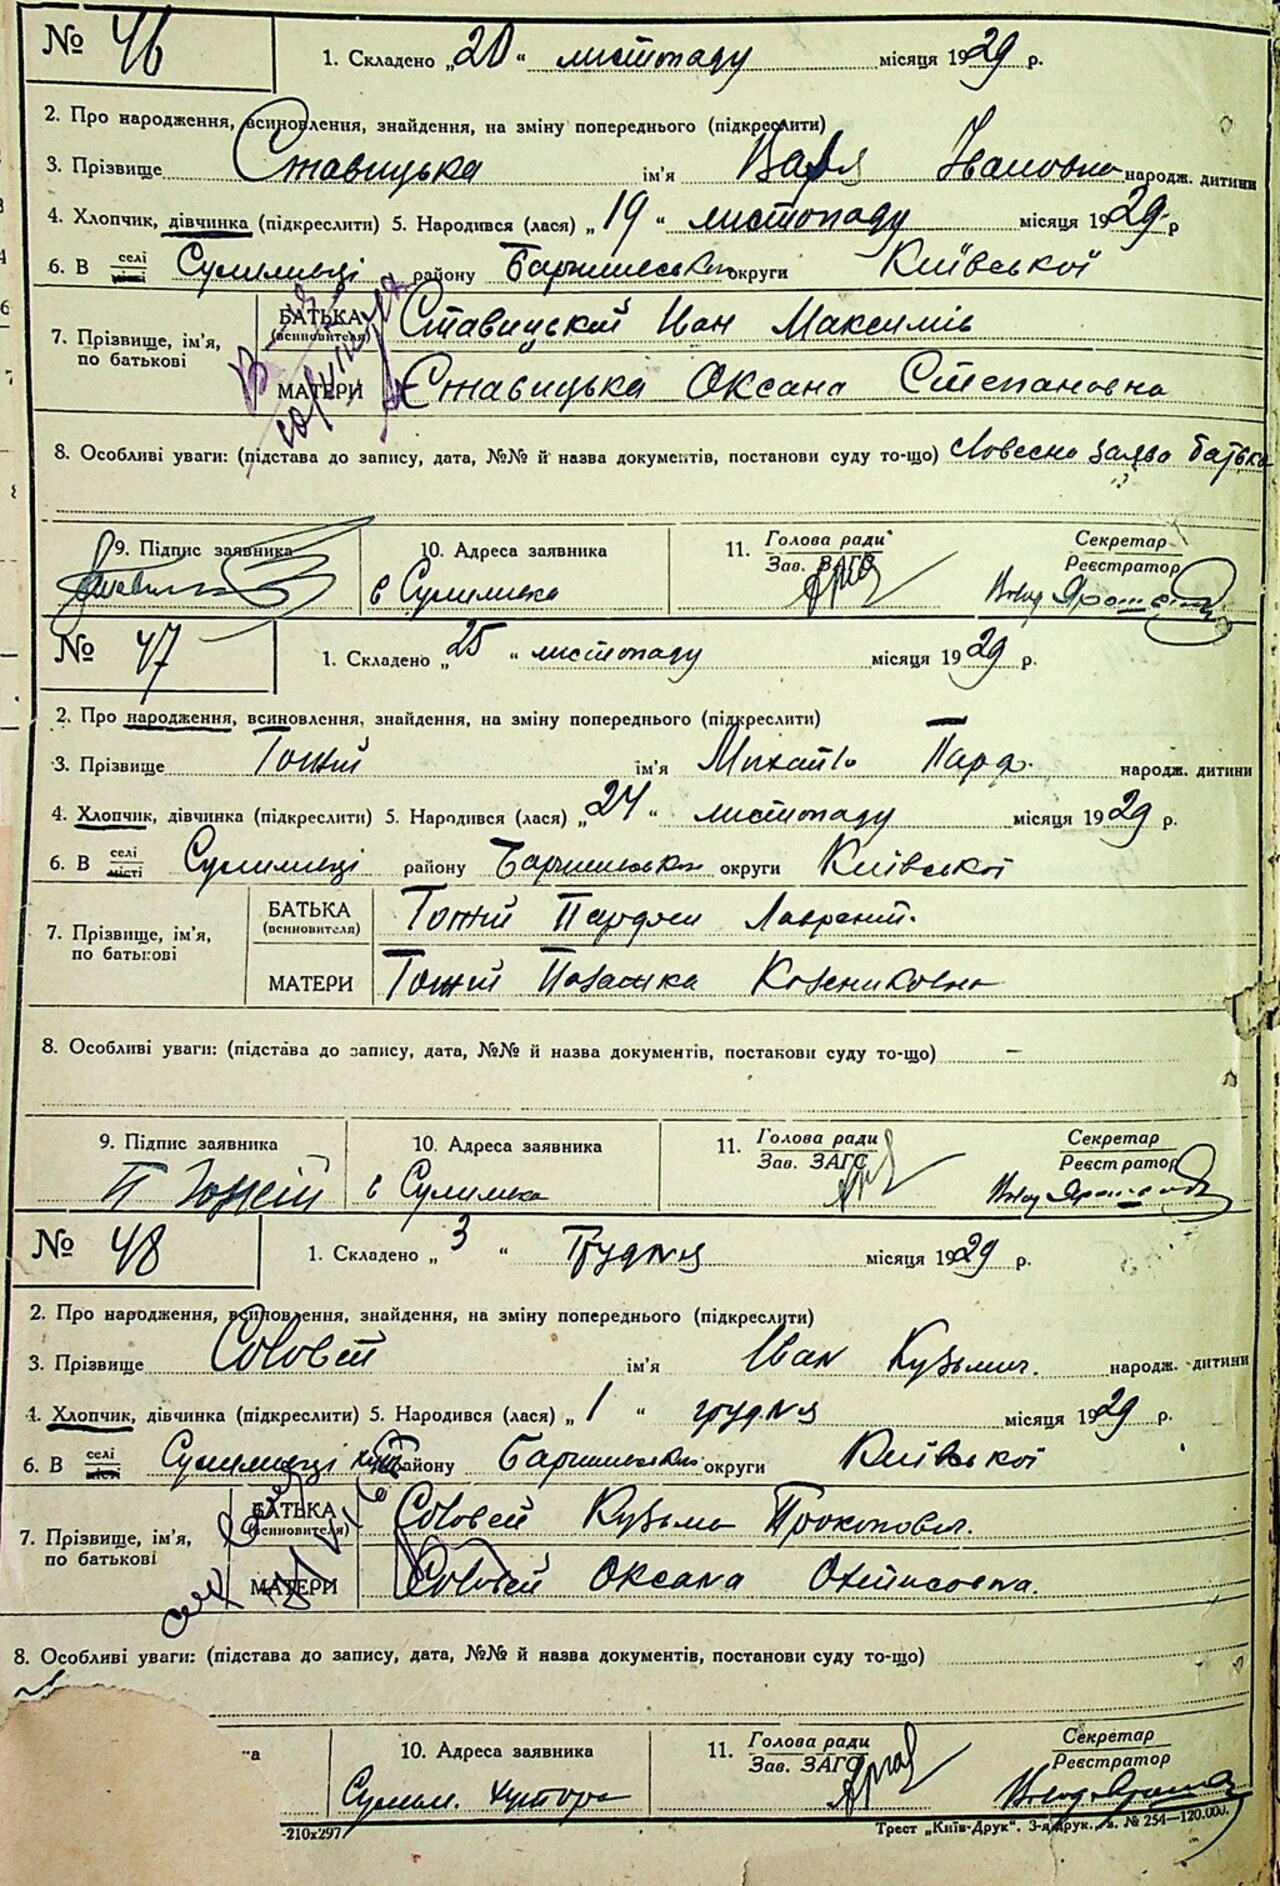 № 46
1. Складено „20“ листопаду місяця 1929 р.
2. Про народження, всиновлення, знайдення, на зміну попереднього (підкреслити)
3. Прізвище Ставицька ім'я Варя Івановна народж. дитини
4. Хлопчик, дівчинка (підкреслити) 5. Народився (лася) „19“ листопаду місяця 1929 р
6. В селі місті Сулимівці району Баришевськ округи Київської
7. Прізвище, ім'я, по батькові
БАТЬКА (всиновителя) Ставицький Иван Максимів
МАТЕРИ Ставицька Оксана Степановна
8. Особливі уваги: (підстава до запису, дата, №№ й назва документів, постанови суду то-що) Словесна заява батька
9. Підпис заявника
10. Адреса заявника
11. Голова ради Зав. ЗАГС
Секретар Реєстратор
с Сулимівка
№ 47
1. Складено „25“ листопаду місяця 1929 р.
2. Про народження, всиновлення, знайдення, на зміну попереднього (підкреслити)
3. Прізвище ім'я Михайло Парф. народж. дитини
4. Хлопчик, дівчинка (підкреслити) 5. Народився (лася) „24“ листопаду місяця 1929 р.
6. В селі місті Сулимівці району Баришевськ округи Київської
7. Прізвище, ім'я, по батькові
БАТЬКА (всиновителя) Лаврентій.
МАТЕРИ
8. Особливі уваги: (підстава до запису, дата, №№ й назва документів, постанови суду то-що) –
9. Підпис заявника
10. Адреса заявника
11. Голова ради Зав. ЗАГС
Секретар Реєстратор
с Сулимівка
№ 48
1. Складено „3“ Грудня місяця 1929 р.
2. Про народження, всиновлення, знайдення, на зміну попереднього (підкреслити)
3. Прізвище Соловей ім'я Іван Кузьмич. народж. дитини
4. Хлопчик, дівчинка (підкреслити) 5. Народився (лася) „1“ грудня місяця 1929 р.
6. В селі місті Сулимівці хут району Баришевськ округи Київської
7. Прізвище, ім'я, по батькові
БАТЬКА (всиновителя) Соловей Кузьма Прокопович.
МАТЕРИ Соловей Оксана
8. Особливі уваги: (підстава до запису, дата, №№ й назва документів, постанови суду то-що)
10. Адреса заявника
11. Голова ради Зав. ЗАГС
Секретар Реєстратор
Сулим. хутора
-210х297
Трест „Київ-Друк“. 3-я друк. № 254—120.000.